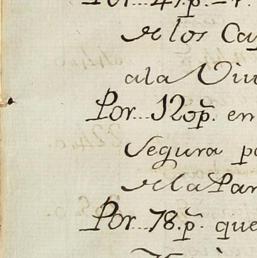 Por... 47.p.
de los Ca
ala Viu
Por... 120p. en
Segura p
de la Par
Por... 78.p. que